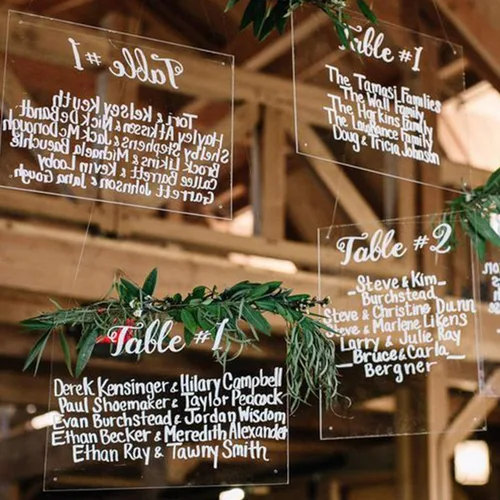 Table #1
Tori & Kelsey Keuth
Hayley Atkisson & Nick DeBardt
Shelby Stephens & Jack McDonough
Brock Likims & Michaela Buenchle
Callee Barrett & Kevin Looby
Garrett Johnson & Jana Gough
Table #1
The Tamasi Families
The Wall Family
The Harkins Family
The LaFrance Family
Doug & Tricia Johnson
Table #2
Steve & Kim
Burchstead
Steve & Christine Dunn
Steve & Marlene Likens
Larry & Julie Ray
Bruce & Carla
Bergner
Table #1
Derek Kensinger & Hilary Campbell
Paul Shoemaker & Taylor Peacock
Evan Burchstead & Jordan Wisdom
Ethan Becker & Meredith Alexander
Ethan Ray & Tawny Smith